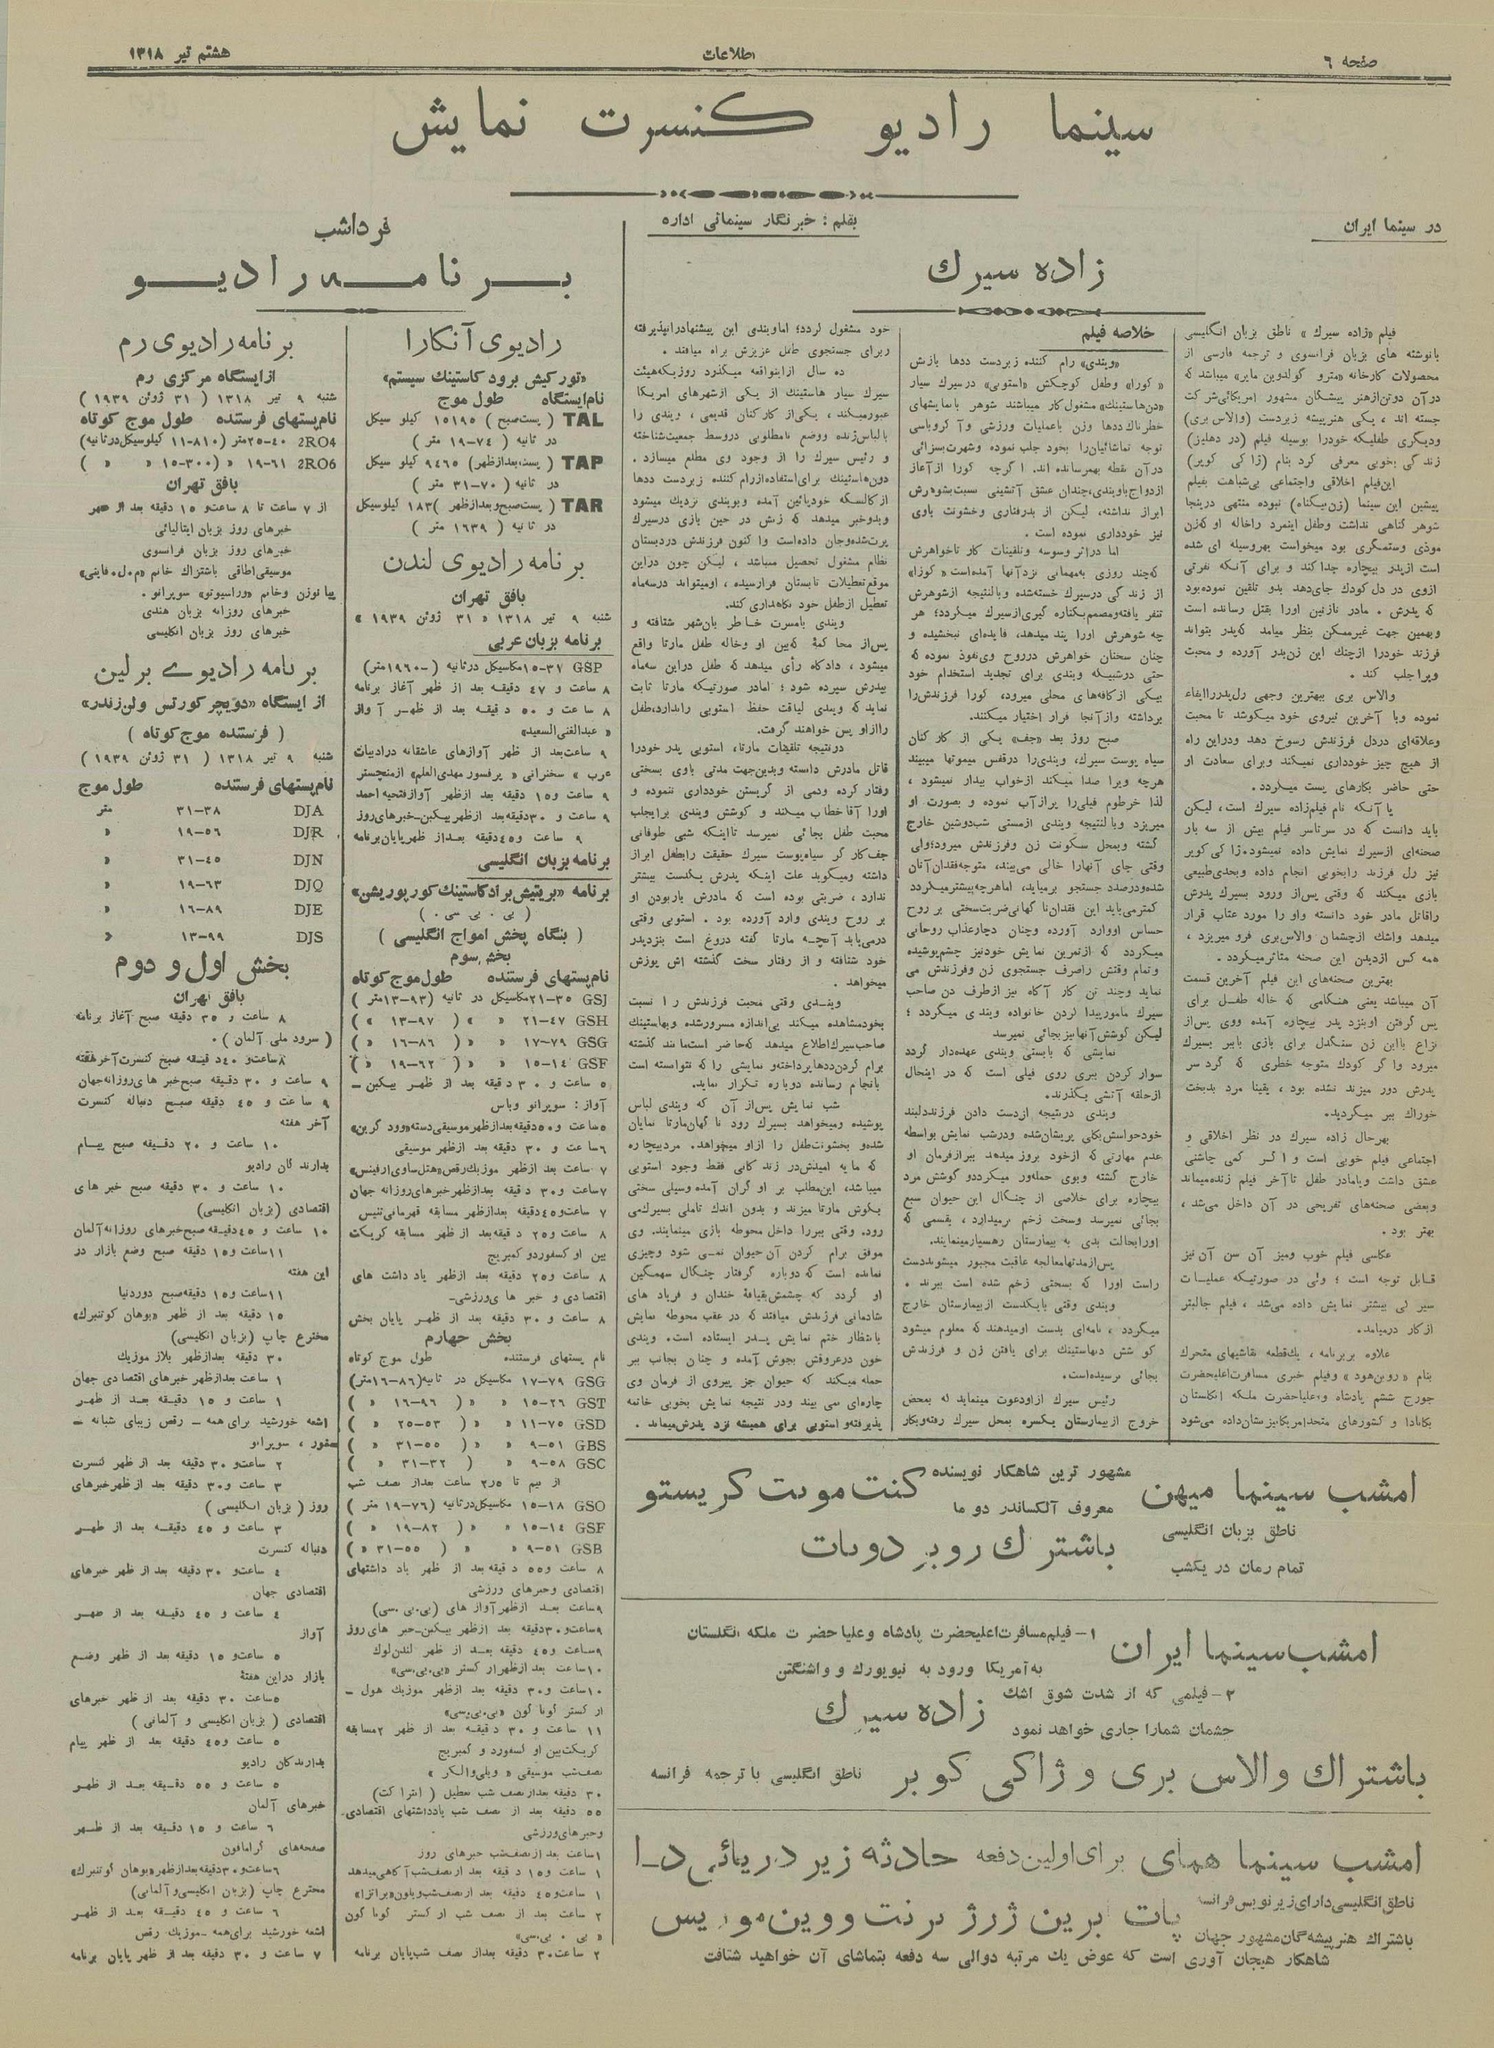 صفحه ٦
اطلاعات
هشتم تیر ۱۳۱۸
سینما رادیو کنسرت نمایش
در سینما ایران
بقلم : خبرنگار سینمائی اداره
زاده سیرك
فیلم «زاده سیرك» ناطق بزبان انگلیسی
بانوشته های بزبان فرانسوی و ترجمه فارسی از
محصولات کارخانه «مترو گولدوین مایر» میباشد که
درآن دوتن‌ازهنر پیشگان مشهور امریکائی‌شرکت
جسته اند ، یکی هنرپیشه زبردست (والاس بری)
ودیگری طفلیکه خودرا بوسیله فیلم (در دهلیز)
زندگی بخوبی معرفی کرد بنام (ژاکی کوپر)
این‌فیلم اخلاقی واجتماعی بی‌شباهت بفیلم
پیشین این سینما (زن‌بیگناه) نبوده منتهی درینجا
شوهر گناهی نداشت وطفل اینمرد راخاله او که‌زن
موذی وستمگری بود میخواست بهروسیله ای شده
است ازپدر بیچاره جداکند و برای آنکه نفرتی
ازوی در دل کودك جای‌دهد بدو تلقین نموده‌بود
که پدرش ، مادر نازنین اورا بقتل رسانده است
وبهمین جهت غیرممکن بنظر میامد که‌پدر بتواند
فرزند خودرا ازچنك این زن‌بدر آورده و محبت
ویرا جلب کند .
والاس بری ببهترین وجهی رل‌پدرراایفاء
نموده وبا آخرین نیروی خود میکوشد تا محبت
وعلاقه‌ای دردل فرزندش رسوخ دهد ودراین راه
از هیچ چیز خودداری نمیکند وبرای سعادت او
حتی حاضر بکارهای پست میگردد.
با آنکه نام فیلم‌زاده سیرك است، لیکن
باید دانست که در سرتاسر فیلم بیش از سه بار
صحنه‌ای ازسیرك نمایش داده نمیشود. ژاکی کوپر
نیز رل فرزند رابخوبی انجام داده وبحدی‌طبیعی
بازی میکند که وقتی پس‌از ورود بسیرك پدرش
راقاتل مادر خود دانسته واو را مورد عتاب قرار
میدهد واشك ازچشمان والاس‌بری فرو میریزد ،
همه کس ازدیدن این صحنه متاثرمیگردد .
بهترین صحنه‌های این فیلم آخرین قسمت
آن میباشد یعنی هنگامی که خاله طفل برای
پس گرفتن اوبنزد پدر بیچاره آمده ووی پس‌از
نزاع بااین زن سنگدل برای بازی باببر بسیرك
میرود واگر کودك متوجه خطری که گرد سر
پدرش دور میزند نشده بود ، یقینا مرد بدبخت
خوراك ببر میگردید.
بهرحال زاده سیرك در نظر اخلاقی و
اجتماعی فیلم خوبی است و اگر کمی چاشنی
عشق داشت ویامادر طفل تاآخر فیلم زنده‌میماند
وبعضی صحنه‌های تفریحی در آن داخل می‌شد ،
بهتر بود .
عکاسی فیلم خوب ومیز آن سن آن نیز
قابل توجه است ؛ ولی در صورتیکه عملیات
سیرکی بیشتر نمایش داده می‌شد ، فیلم جالبتر
ازکار درمیامد.
علاوه بربرنامه ، یك‌قطعه نقاشیهای متحرك
بنام «روبن‌هود» وفیلم خبری مسافرت‌اعلیحضرت
جورج ششم پادشاه و علیاحضرت ملکه انگلستان
بکانادا و کشورهای متحدامریکانیزنشان‌داده می‌شود
خلاصه فیلم
«ویندی» رام کننده زبردست ددها بازنش
«کورا» وطفل کوچکش «استوبی» درسیرك سیار
«دن‌هاستینك» مشغول کار میباشند شوهر بانمایشهای
خطرناك ددها وزن باعملیات ورزشی وآکروباسی
توجه تماشائیان‌را بخود جلب نموده وشهرت بسزائی
درآن نقطه بهمرسانده اند. اگرچه کورا ازآغاز
ازدواج باویندی، چندان عشق آتشینی نسبت بشوهرش
ابراز نداشته، لیکن از بدرفتاری وخشونت باوی
نیز خودداری نموده است .
اما دراثر وسوسه وتلقینات کار تاخواهرش
که‌چند روزی به‌مهمانی نزدآنها آمده‌است «کورا»
از زندگی درسیرك خسته‌شده وبالنتیجه ازشوهرش
تنفر یافته‌ومصمم بکناره گیری‌ازسیرك میگردد؛ هر
چه شوهرش اورا پند میدهد، فایده‌ای نبخشیده و
چنان سخنان خواهرش درروح وی‌نفوذ نموده که
حتی درشبیکه ویندی برای تجدید استخدام خود
بیکی ازکافه‌های محلی میرود، کورا فرزندش‌را
برداشته وازآنجا فرار اختیار میکنند.
صبح روز بعد «جف» یکی از کارکنان
سیاه پوست سیرك، ویندی‌را درقفس میمونها میبیند
هرچه ویرا صدا میکند ازخواب بیدار نمیشود ،
لذا خرطوم فیلی‌را پرازآب نموده و بصورت او
میریزد وبالنتیجه ویندی ازمستی شب‌دوشین خارج
گشته وبمحل سکونت زن وفرزندش میرود؛ولی
وقتی جای آنهارا خالی می‌بیند، متوجه‌فقدان‌آنان
شده‌ودرصدد جستجو برمیاید، اماهرچه‌بیشترمیگردد
کمترمی‌یابد این فقدان‌ناگهانی‌ضربت‌سختی بر روح
حساس اووارد آورده وچنان دچارعذاب روحانی
میگردد که ازتمرین نمایش خودنیز چشم‌پوشیده
وتمام وقتش راصرف جستجوی زن وفرزندش می
نماید وچند تن کار آگاه نیز ازطرف دن صاحب
سیرك مامورپیدا کردن خانواده ویندی میگردد ؛
لیکن کوشش آنهانیزبجائی نمیرسد
نمایشی که بایستی ویندی عهده‌دار گردد
سوار کردن ببری روی فیلی است که در اینحال
ازحلقه آتشی بگذرند.
ویندی درنتیجه ازدست دادن فرزنددلبند
خودحواسش‌بکلی پریشان‌شده ودرشب نمایش بواسطه
عدم مهارتی که ازخود بروز میدهد ببرازفرمان او
خارج گشته وبوی حمله‌ور میگرددو گوشش مرد
بیچاره برای خلاصی از چنگال این حیوان سبع
بجائی نمیرسد وسخت زخم برمیدارد ، بقسمی که
اورابحالت بدی به بیمارستان رهسپارمینمایند.
پس‌ازمدتهامعالجه عاقبت مجبور میشونددست
راست اورا که بسختی زخم شده است ببرند .
ویندی وقتی بایکدست ازبیمارستان خارج
میگردد ، نامه‌ای بدست اومیدهند که معلوم میشود
کوشش دن‌هاستینك برای یافتن زن و فرزندش
بجائی نرسیده‌است.
رئیس سیرك ازاودعوت مینماید که بمحض
خروج ازبیمارستان یکسره بمحل سیرك رفته‌وبکار
خود مشغول گردد؛ اماویندی این پیشنهادرانپذیرفته
وبرای جستجوی طفل عزیزش براه میافتد .
ده سال ازاینواقعه میگذرد روزیکه‌هیئت
سیرك سیار هاستینك از یکی ازشهرهای امریکا
عبورمیکند ، یکی‌از کارکنان قدیمی ، ویندی را
بالباس‌ژنده ووضع نامطلوبی دروسط جمعیت‌شناخته
و رئیس سیرك را از وجود وی مطلع میسازد .
دون‌هاستینك برای‌استفاده‌ازرام کننده زبردست ددها
ازکالسکه خودپائین آمده وبویندی نزدیك میشود
وبدوخبر میدهد که زنش در حین بازی درسیرك
پرت‌شده‌وجان داده‌است وا کنون فرزندش دردبستان
نظام مشغول تحصیل میباشد ، لیکن چون دراین
موقع‌تعطیلات تابستان فرارسیده ، اومیتواند درسه‌ماه
تعطیل ازطفل خود نگاهداری کند.
ویندی بامسرت خاطر بان‌شهر شتافته و
پس‌از محاکمهٔ که‌بین او وخاله طفل مارتا واقع
میشود ، دادگاه رأی میدهد که طفل دراین سه‌ماه
بپدرش سپرده شود ؛ امادر صورتیکه مارتا ثابت
نماید که ویندی لیاقت حفظ استوبی راندارد، طفل
راازاو پس خواهند گرفت.
درنتیجه تلقینات مارتا، استوبی پدر خودرا
قاتل مادرش دانسته وبدین‌جهت مدتی باوی بسختی
رفتار کرده ودمی از گریستن خودداری ننموده و
اورا آقا خطاب میکند و کوشش ویندی برایجلب
محبت طفل بجائی نمیرسد تااینکه شبی طوفانی
جف‌کارگر سیاه‌پوست سیرك حقیقت رابطفل ابراز
داشته ومیگوید علت اینکه پدرش یکدست بیشتر
ندارد ، ضربتی بوده است که مادرش باربودن او
بر روح ویندی وارد آورده بود . استوبی وقتی
درمی‌یابد آنچه مارتا گفته دروغ است بنزدپدر
خود شتافته و از رفتار سخت گذشته اش پوزش
میخواهد .
ویندی وقتی محبت فرزندش را نسبت
بخودمشاهده میکند بی‌اندازه مسرورشده وبهاستینك
صاحب‌سیرك‌اطلاع میدهد که‌حاضر است‌مانند گذشته
برام کردن‌ددهاپرداخته‌و نمایشی را که نتوانسته است
بانجام رسانده دوباره تکرار نماید.
شب نمایش پس‌از آن که ویندی لباس
پوشیده ومیخواهد بسیرك رود ناگهان‌مارتا نمایان
شده‌و بخشونت‌طفل را ازاو میخواهد. مردبیچاره
که مایه امیدش‌در زندگانی فقط وجود استوبی
میباشد، این‌مطلب بر او گران آمده وسیلی سختی
بگوش مارتا میزند و بدون اندك تاملی بسیرك‌می
رود. وقتی ببررا داخل محوطه بازی مینمایند. وی
موفق برام کردن آن حیوان نمی شود وچیزی
نمانده است که‌دوباره گرفتار چنگال سهمگین
او گردد که چشمش‌بقیافهٔ خندان و فریاد های
شادمانی فرزندش میافتد که در عقب محوطه نمایش
بانتظار ختم نمایش پدر ایستاده است. ویندی
خون درعروقش بجوش آمده و چنان بجانب ببر
حمله میکند که حیوان جز پیروی از فرمان وی
چاره‌ای نمی بیند ودر نتیجه نمایش بخوبی خاتمه
پذیرفته‌و استوبی برای همیشه نزد پدرش‌میماند .
امشب سینما میهن
مشهور ترین شاهکار نویسنده
معروف آلکساندر دو ما
کنت مونت کریستو
ناطق بزبان انگلیسی
تمام رمان در یکشب
باشتراك روبر دونات
امشب سینما ایران
۱- فیلم‌مسافرت‌اعلیحضرت پادشاه وعلیا حضرت ملکه انگلستان
به‌آمریکا ورود به نیویورك و واشنگتن
۲- فیلمی که از شدت شوق اشك
چشمان شمارا جاری خواهد نمود
زاده سیرك
باشتراك والاس بری و ژاکی کوپر ناطق انگلیسی با ترجمه فرانسه
امشب سینما همای برای‌اولین‌دفعه حادثه زیر دریائی د-۱
ناطق‌انگلیسی‌دارای‌زیرنویس‌فرانسه
باشتراك هنرپیشه‌گان‌مشهور جهان
پات ابرین ژرژ برنت ووین موریس
شاهکار هیجان آوری است که عوض یك مرتبه دوالی سه دفعه بتماشای آن خواهید شتافت
فرداشب
برنامه رادیو
رادیوی آنکارا
«تورکیش برود کاستینك سیستم»
نام‌ایستگاه طول موج
TAL (پست‌صبح) ۱۵۱۹۵ کیلو سیکل
در ثانیه (۷٤-۱۹ متر )
TAP (پست‌بعدازظهر) ۹٤٦٥ کیلو سیکل
در ثانیه ( ۷۰-۳۱ متر )
TAR (پست‌صبح‌وبعدازظهر) ۱۸۳ کیلوسیکل
در ثانیه ( ۱٦۳۹ متر )
برنامه رادیوی لندن
بافق تهران
شنبه ۹ تیر ۱۳۱۸ « ۳۱ ژوئن ۱۹۳۹ »
برنامه بزبان عربی
GSP ۳۱-۱۵مگاسیکل درثانیه (-۱۹٦۰متر)
۸ ساعت و ٤۷ دقیقه بعد از ظهر آغاز برنامه
۸ ساعت و ۵۰ دقیقه بعد از ظهر آواز
«عبدالغنی‌السعید»
۹ ساعت‌بعد از ظهر آوازهای عاشقانه درادبیات
عرب » سخنرانی « پرفسور مهدی‌العلم» ازمنچستر
۹ ساعت و۱۵ دقیقه بعد ازظهر آوازفتحیه‌احمد
۹ ساعت و ۳۰دقیقه‌بعد ازظهر بیکبن-خبرهای‌روز
۹ ساعت و٤٥دقیقه بعداز ظهرپایان‌برنامه
برنامه بزبان انگلیسی
برنامه «بریتیش‌برادکاستینك‌کورپوریشن»
( بی . بی سی . )
( بنگاه پخش امواج انگلیسی )
بخش سوم
نام‌پستهای فرستنده طول‌موج‌کوتاه
GSJ ۳٥-۲۱مگاسیکل در ثانیه (۹۳-۱۳متر )
GSH ٤۷-۲۱ « « ( ۹۷-۱۳ « )
GSG ۷۹-۱۷ « « ( ۸٦-۱٦ « )
GSF ۱٤-۱۵ « « ( ٦۲-۱۹ « )
۵ ساعت و ۳۰ دقیقه بعد از ظهر بیکبن -
آواز : سوپرانو وباس
۵ ساعت و۵۰دقیقه‌بعدازظهرموسیقی‌دسته«وود گرین»
٦ ساعت و ۳۰ دقیقه بعد ازظهر موسیقی
۷ ساعت بعد ازظهر موزیك‌رقص«هتل‌ساوی‌ارفینس»
۷ساعت و۳۰ دقیقه بعدازظهرخبرهای‌روزانه جهان
۷ ساعت‌و٤٥دقیقه بعدازظهر مسابقه قهرمانی‌تنیس
۸ ساعت و۲۵ دقیقه بعد ازظهر مسابقه کریکت
بین اوکسفوردو کمبریج
۸ ساعت و۲۵ دقیقه بعد ازظهر یادداشت های
اقتصادی و خبر های‌ورزشی-
۸ ساعت و ۳۰ دقیقه بعد از ظهر پایان بخش
بخش چهارم
نام پستهای فرستنده طول موج کوتاه
GSG ۷۹-۱۷ مگاسیکل در ثانیه(۸٦-۱٦متر)
GST ۲٦-۱۵ « « ( ۹٦-۱٦ « )
GSD ۷۵-۱۱ « « ( ۵۳-۲۵ « )
GBS ۵۱-۹ « « ( ۵۵-۳۱ « )
GSC ۵۸-۹ « « ( ۳۲-۳۱ « )
از نیم تا ۲٫۵ ساعت بعداز نصف شب
GSO ۱۸-۱۵ مگاسیکل‌درثانیه (۷٦-۱۹ متر )
GSF ۱٤-۱۵ « « ( ۸۲-۱۹ « )
GSB ۵۱-۹ « « ( ۵۵-۳۱ « )
۸ ساعت و۵۵ دقیقه بعد از ظهر یاد داشتهای
اقتصادی وخبرهای ورزشی
۹ساعت بعد ازظهرآواز های (بی.بی.سی)
۹ساعت‌و۳۰دقیقه بعد ازظهر بیکبن-خبر های روز
۹ساعت و٤٥ دقیقه بعد از ظهر لندن‌لوك
۱۰ساعت بعد ازظهرارکستر «بی.بی.سی»
۱۰ساعت و۳۰ دقیقه بعد ازظهر موزیك هول -
ارکستر گوناگون «بی.بی.سی»
۱۱ ساعت و ۳۰ دقیقه بعد از ظهر ۲مسابقه
کریکت‌بین اوکسفورد و کمبریج
نصف‌شب موسیقی « ویلی‌والکر »
۳۰ دقیقه بعدازنصف شب تعطیل (انتراکت)
۵۵ دقیقه بعد از نصف شب یادداشتهای اقتصادی
وخبرهای‌ورزشی
۱ساعت بعد ازنصف‌شب خبرهای روز
۱ ساعت‌و۱۵ دقیقه بعد ازنصف‌شب‌آگاهی‌میدهد
۱ ساعت‌و٤٥ دقیقه بعد ازنصف‌شب‌ویلون«برانزا»
۲ ساعت بعد از نصف شب ارکستر گوناگون
«بی.بی.سی»
۲ ساعت‌۳۰دقیقه بعداز نصف شب‌پایان برنامه
برنامه رادیوی رم
ازایستگاه مرکزی رم
شنبه ۹ تیر ۱۳۱۸ ( ۳۱ ژوئن ۱۹۳۹ )
نام‌پستهای فرستنده طول موج کوتاه
2RO4 ٤۰-۲۵متر (۸۱۰-۱۱ کیلوسیکل‌درثانیه)
2RO6 ٦۱-۱۹ « (۳۰۰-۱۵ « « )
بافق تهران
از ۷ ساعت تا ۸ ساعت‌و ۱۵ دقیقه بعد از ظهر
خبرهای روز بزبان ایتالیائی
خبرهای روز بزبان فرانسوی
موسیقی‌اطاقی باشتراك خانم «م.ل.فاینی»
پیانوزن وخانم «وراسیوتو» سوپرانو .
خبرهای روزانه بزبان هندی
خبرهای روز بزبان انگلیسی
برنامه رادیوے برلین
از ایستگاه «دویچر کورتس ولن‌زندر»
( فرستنده موج‌کوتاه )
شنبه ۹ تیر ۱۳۱۸ ( ۳۱ ژوئن ۱۹۳۹ )
نام‌پستهای فرستنده طول موج
DJA ۳۸-۳۱ متر
DJR ۵٦-۱۹ «
DJN ٤٥-۳۱ «
DJQ ٦۳-۱۹ «
DJE ۸۹-۱٦ «
DJS ۹۹-۱۳ «
بخش اول و دوم
بافق تهران
۸ ساعت و ۳۵ دقیقه صبح آغاز برنامه
( سرود ملی آلمان ) .
۸ساعت‌و ٤۰دقیقه صبح کنسرت‌آخرهفته
۹ ساعت و ۳۰ دقیقه صبح‌خبر های‌روزانه‌جهان
۹ ساعت و ٤٥ دقیقه صبح دنباله کنسرت
آخر هفته
۱۰ ساعت و ۲۰ دقیقه صبح پیام
بدارند گان رادیو
۱۰ ساعت و ۳۰ دقیقه صبح خبر های
اقتصادی (بزبان انگلیسی)
۱۰ ساعت و ٤٥دقیقه صبح‌خبرهای روزانه‌آلمان
۱۱ساعت و۱۵ دقیقه صبح وضع بازار در
این هفته
۱۱ساعت و۱۵ دقیقه‌صبح دوردنیا
۱۵ دقیقه بعد از ظهر «یوهان گوتنبرك»
مخترع چاپ (بزبان انگلیسی)
۳۰ دقیقه بعدازظهر بلاز موزیك
۱ ساعت بعدازظهر خبرهای اقتصادی جهان
۱ ساعت و ۱۵ دقیقه بعد از ظهر
اشعه خورشید برای‌همه - رقص زیبای شبانه -
سور ، سوپرانو
۲ ساعت و ۳۰ دقیقه بعد از ظهر کنسرت
۳ ساعت‌و ۳۰ دقیقه بعد از ظهرخبرهای
روز (بزبان انگلیسی)
۳ ساعت و ٤٥ دقیقه بعد از ظهر
دنباله کنسرت
٤ ساعت‌و ۳۰ دقیقه بعد از ظهر خبرهای
اقتصادی جهان
٤ ساعت و ٤٥ دقیقه بعد از ظهر
آواز
۵ ساعت‌و ۱۵ دقیقه بعد از ظهر وضع
بازار دراین هفتهٔ
۵ساعت ۳۰ دقیقه بعد از ظهر خبرهای
اقتصادی (بزبان انگلیسی و آلمانی )
۵ ساعت و٤٥ دقیقه بعد از ظهر پیام
بدارندکان رادیو
۵ ساعت و ۵۵ دقیقه بعد از ظهر
خبرهای آلمان
٦ ساعت و ۱۵ دقیقه بعد از ظهر
صفحه‌های گرامافون
٦ساعت‌و۳۰دقیقه‌بعدازظهر«یوهان گوتنبرك»
مخترع چاپ (بزبان انگلیسی‌وآلمانی)
٦ ساعت و ٤٥ دقیقه بعد از ظهر
اشعه خورشید برای‌همه - موزیك رقص
۷ ساعت و ۳۰ دقیقه بعد از ظهر پایان برنامه